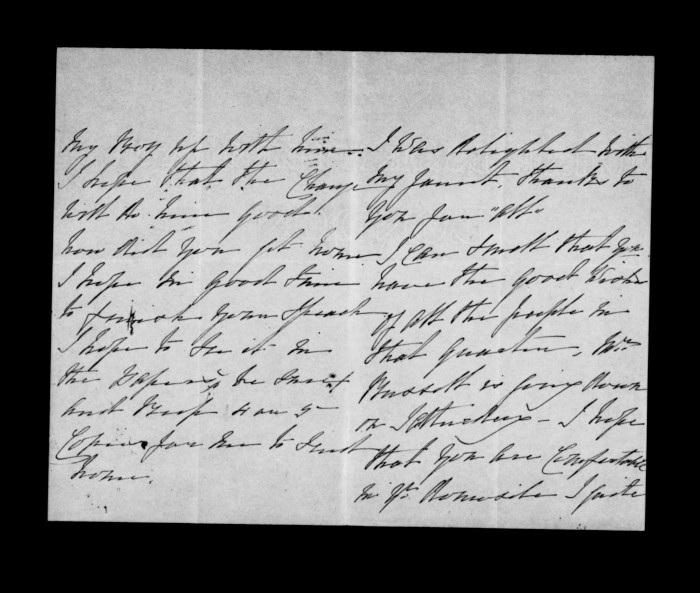 my Boy up with him.
I hope that the Change
will do him good.
how did you get home
I hope in good time
to finish your Speach
I hope to see it in
the Papers, be sure
and keep 4 or 5
Copies for me to send
home.
I was delighted with
my jaunt, thanks to
you for "all"
I can that you
have the good wishes
of all the people in
that quarter, Mrs
Russell is going down
on Saturday - I hope
that you are Comfortable
in yr I quite